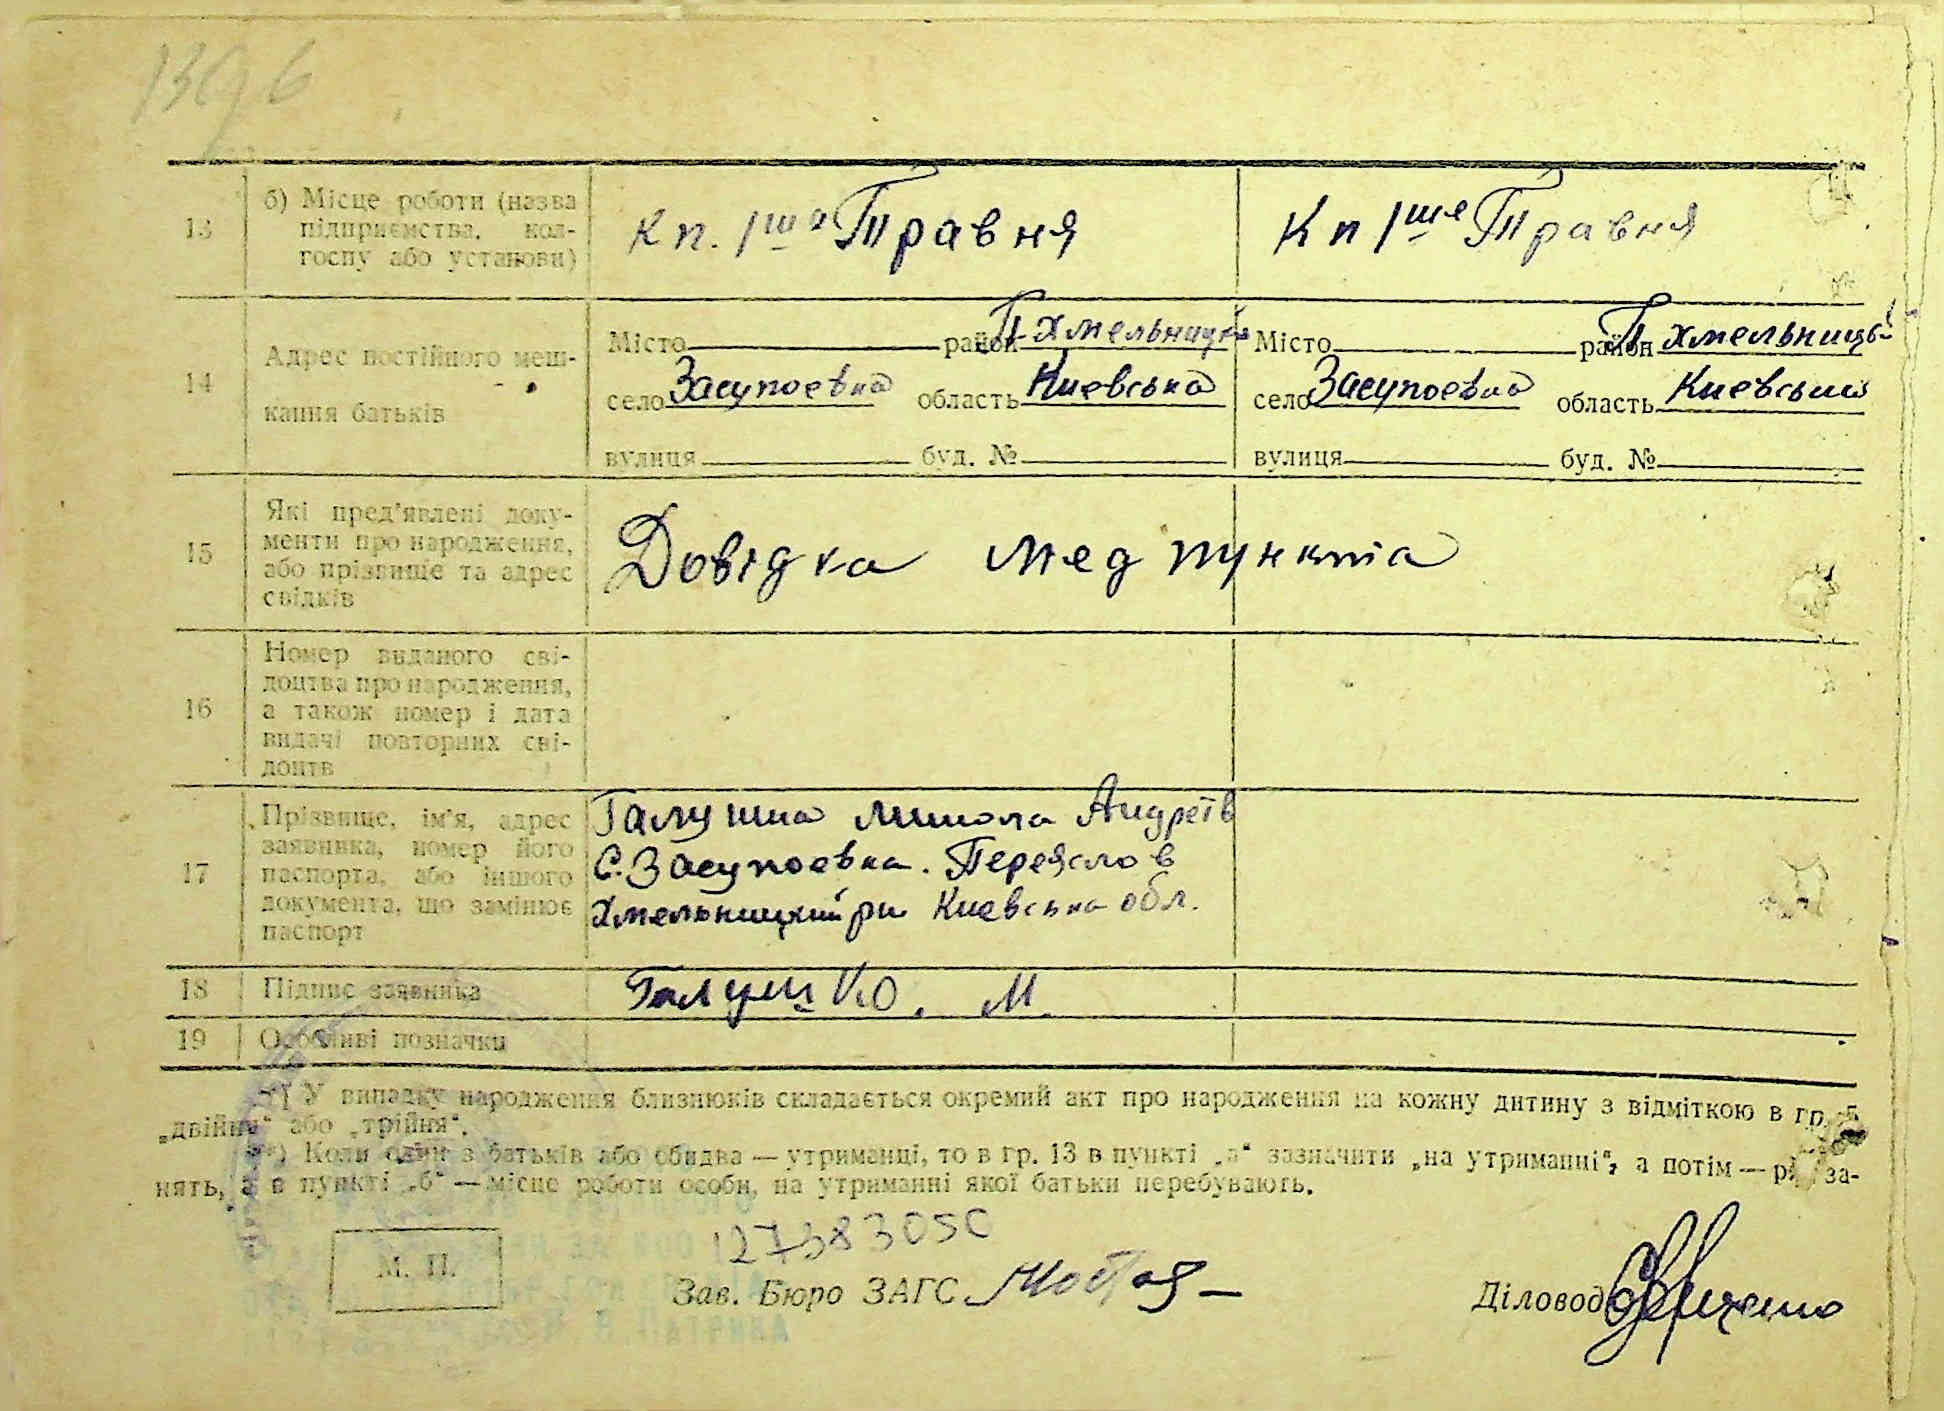 1396
13 б) Місце роботи (назва підприємства, кол-госпу або установи) Кп. 1ша Травня Кп 1ше Травня
14 Адрес постійного меш-кання батьків
Місто район П Хмельницьк Місто район П Хмельницьк
село Засупоевка область Киевська село Засупоевка область Киевська
вулиця буд. № вулиця буд. №
15 Які пред'явлені доку-
менти про народження,
або прізвище та адрес
свідків
Довідка мед пункта
16 Номер виданого сві-
доцтва про народження,
а також номер і дата
видачі повторних сві-
доцтв
17 Прізвище, ім'я, адрес
заявника, номер його
паспорта, або іншого
документа, що замінює
паспорт
Галушко Микола Андреїв
С. Засупоевка. Переяслов
Хмельницкий рн Киевська обл.
18 Підпис заявника Галушко. М.
19 Особливі позначки
*) У випадку народження близнюків складається окремий акт про народження на кожну дитину з відміткою в гр. 5
„двійня“ або „трійня“.
**) Коли один з батьків або обидва — утриманці, то в гр. 13 в пункті „а“ зазначити „на утриманні“, а потім — рід за-
нять, а в пункті „б“ — місце роботи особи, на утриманні якої батьки перебувають.
М. П.
Зав. Бюро ЗАГС
Діловод